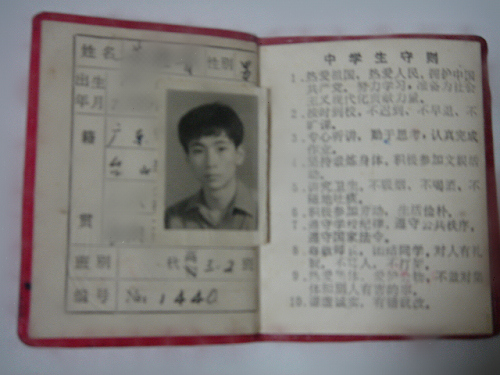 姓名 性别 男
出生
年月
籍 广东
台山
贯
班别 秋 高 3.2 班
编号 No 1440
中学生守则
1、热爱祖国，热爱人民，拥护中国
共产党，努力学习，准备为社会
主义现代化贡献力量。
2、按时到校，不迟到、不早退、不
旷课。
3、专心听讲，勤于思考，认真完成
作业。
4、坚持锻炼身体，积极参加文娱活
动。
5、讲究卫生，不吸烟、不喝酒、不
随地吐痰。
6、积极参加劳动，生活俭朴。
7、遵守学校纪律，遵守公共秩序，
遵守国家法令。
8、尊敬师长，团结同学，对人有礼
貌，不骂人、不打架。
9、热爱集体，爱护公物，不做对集
体和别人有害的事。
10、诚实，有错就改。